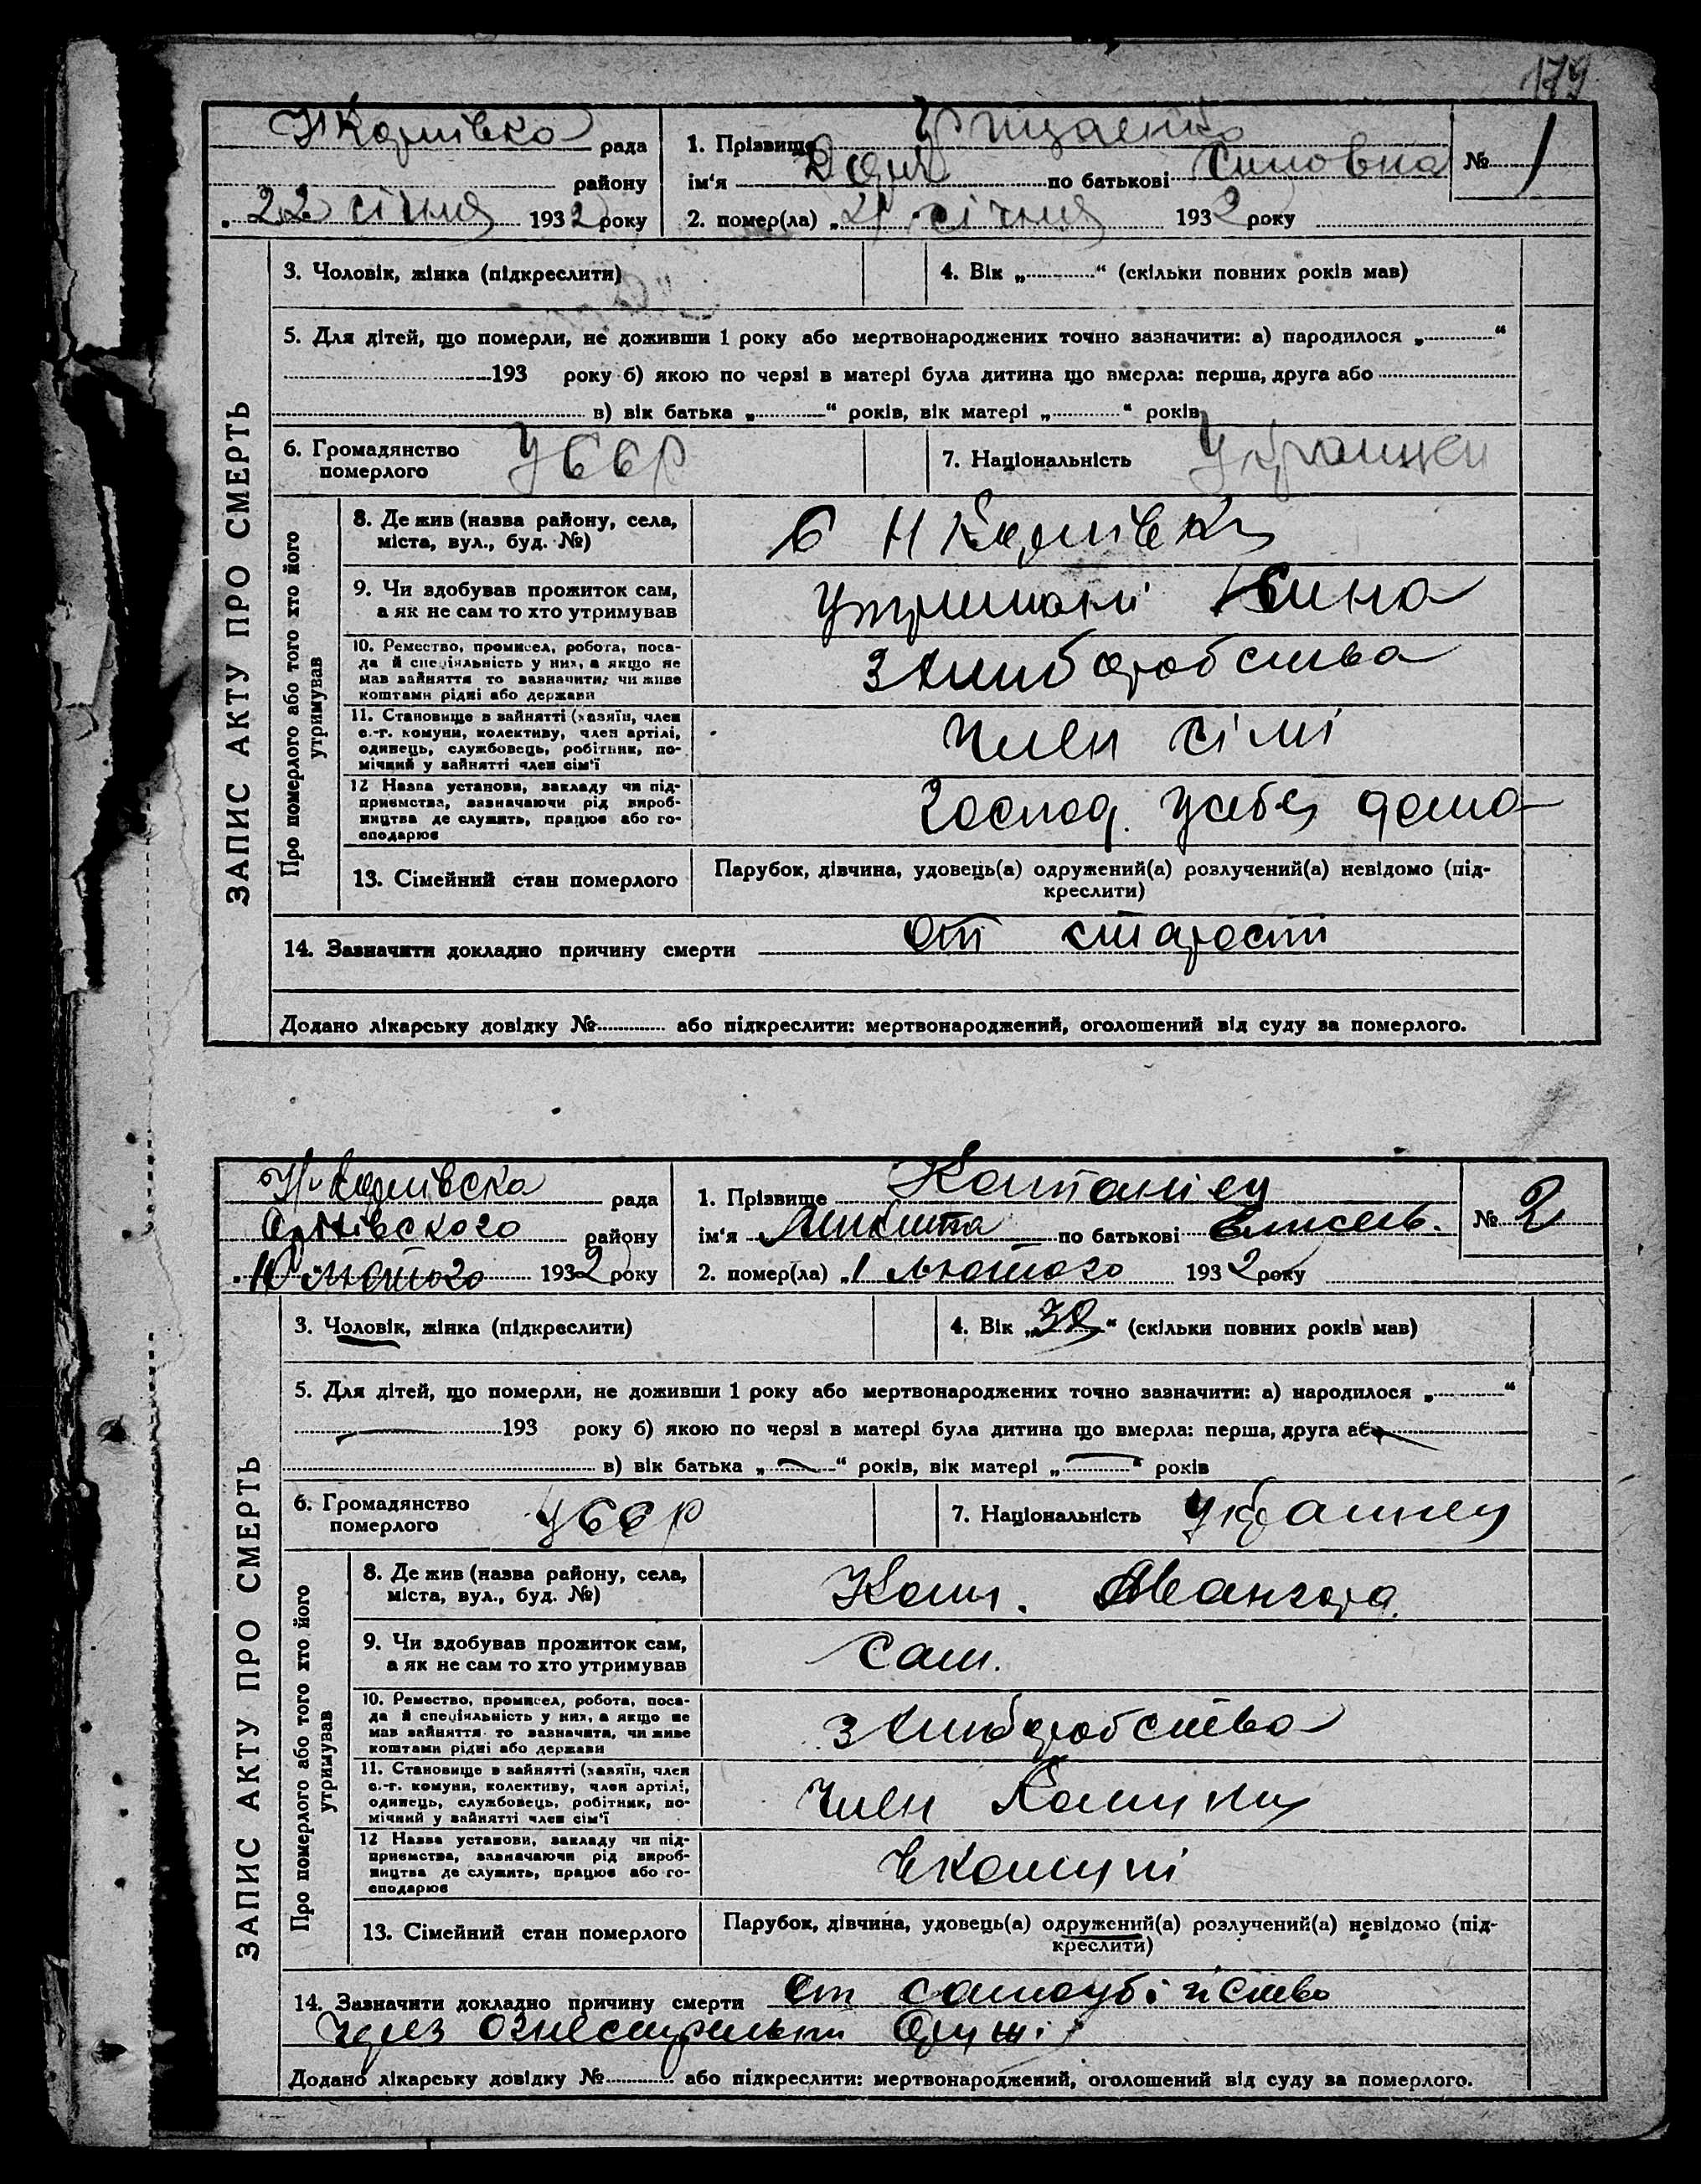 179
Н Карлівка рада
району
„22 січня 1932 року
1. Прізвище Грицаенко
ім'я Дарія по батькові
2. помер(ла) „21 січня 1932 року
№ 1
ЗАПИС АКТУ ПРО СМЕРТЬ
3. Чоловік, жінка (підкреслити)
4. Вік „ “ (скільки повних років мав)
5. Для дітей, що померли, не доживши 1 року або мертвонароджених точно зазначити: а) народилося „ “
193 року б) якою по черзі в матері була дитина що вмерла: перша, друга або
в) вік батька „ “ років, вік матері „ “ років
6. Громадянство померлого УССР
7. Національність Украинцеи
Про померлого або того хто його утримував
8. Де жив (назва району, села,
міста, вул., буд. №)
С Н Карлівки
9. Чи здобував прожиток сам,
а як не сам то хто утримував
Утримані Сина
10. Ремество, промисел, робота, поса-
да й спеціяльність у них, а якщо не
мав зайняття то зазначити, чи живе
коштами рідні або держави
З Хлиборобства
11. Становище в зайнятті (хазяїн, член
с.-г. комуни, колективу, член артілі,
одинець, службовець, робітник, по-
мічний у зайнятті член сім'ї
Член сімі
12 Назва установи, закладу чи під-
приємства, зазначаючи рід вироб-
ництва де служить, працює або го-
сподарює
Господ. Усебя дома
13. Сімейний стан померлого
Парубок, дівчина, удовець(а) одружений(а) розлучений(а) невідомо (під-
креслити)
14. Зазначити докладно причину смерти От старости
Додано лікарську довідку № або підкреслити: мертвонароджений, оголошений від суду за померлого.
Н-Карлівска рада
району
люотого 1932 року
1. Прізвище Капитаніец
ім'я Микита по батькові Елисеів.
2. помер(ла) „1 лютого 1932 року
№ 2
ЗАПИС АКТУ ПРО СМЕРТЬ
3. Чоловік, жінка (підкреслити)
4. Вік „32“ (скільки повних років мав)
5. Для дітей, що померли, не доживши 1 року або мертвонароджених точно зазначити: а) народилося „ “
193 року б) якою по черзі в матері була дитина що вмерла: перша, друга або
в) вік батька „ “ років, вік матері „ “ років
6. Громадянство померлого УССР
7. Національність Украинец
Про померлого або того хто його утримував
8. Де жив (назва району, села,
міста, вул., буд. №)
Ком. Авангард.
9. Чи здобував прожиток сам,
а як не сам то хто утримував
Сам.
10. Ремество, промисел, робота, поса-
да й спеціяльність у них, а якщо не
мав зайняття то зазначити, чи живе
коштами рідні або держави
З Хлиборобства
11. Становище в зайнятті (хазяїн, член
с.-г. комуни, колективу, член артілі,
одинець, службовець, робітник, по-
мічний у зайнятті член сім'ї
Член Комуни
12 Назва установи, закладу чи під-
приємства, зазначаючи рід вироб-
ництва де служить, працює або го-
сподарює
Вкомуні
13. Сімейний стан померлого
Парубок, дівчина, удовець(а) одружений(а) розлучений(а) невідомо (під-
креслити)
14. Зазначити докладно причину смерти От самоубійство
Через Огнестрельни Оружі
Додано лікарську довідку № або підкреслити: мертвонароджений, оголошений від суду за померлого.